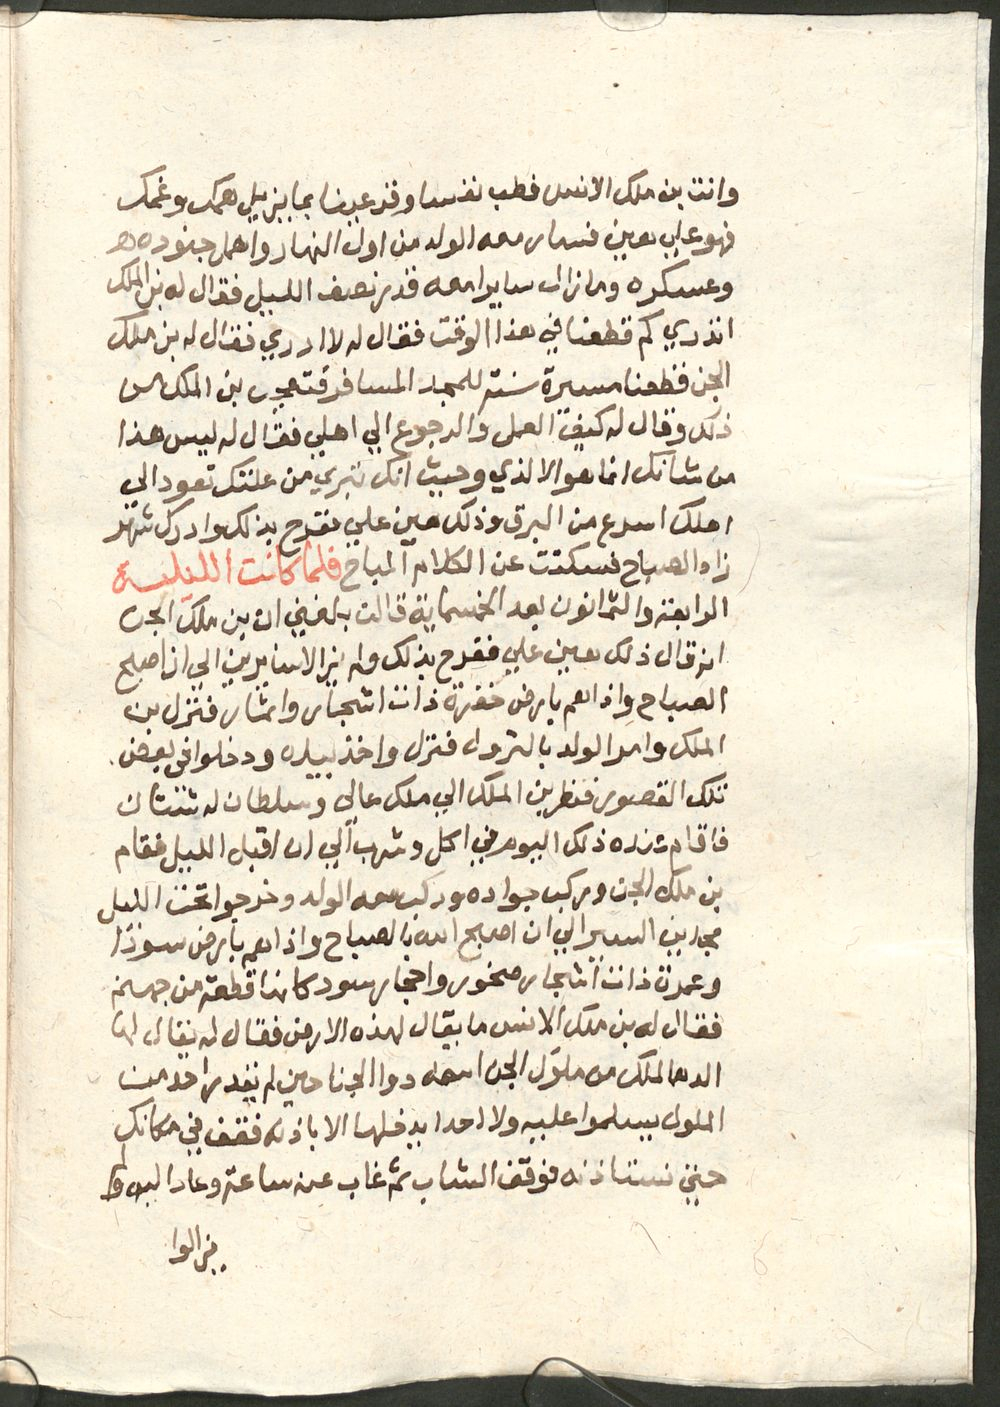 وانت بن ملك الانس فطب نفسا وقر عينا بما يزيل همك وغمك
فهو علي هين فسار معه الولد من اول النهار واهمل جنوده
وعسكره وما زال سايرا معه قدر نصف الليل فقال له بن الملك
اتدري كم قطعنا في هذا الوقت فقال له لا ادري فقال له بن ملك
الجن قطعنا مسيرة سنة للمجد المسافر فتعجب بن الملك من
ذلك وقال له كيف العمل والرجوع الي اهلي فقال له ليس هذا
من شانك انما هو الا لذي وحيث انك تبري من علتك تعود الي
اهلك اسرع من البرق وذلك هين علي ففرح بذلك وادرك شهر
زاد الصباح فسكتت عن الكلام المباح فلما كانت الليلة
الرابعة والثمانون بعد الخمسماية قالت بلغني ان بن ملك الجن
لم قال ذلك هين علي ففرح بذلك ولم يزالا سايرين الي ان اصبح
الصباح واذا هم بارض خضرة ذات اشجار واثمار فنزل بن
الملك وامر الولد بالنزول فنزل واخذ بيده ودخلوا في بعض
تلك القصور فنظر بن الملك الي ملك عالي وسلطان له شان
فاقام عنده ذلك اليوم في اكل وشرب الي ان اقبل الليل فقام
بن ملك الجن وركب جواده وركب معه الولد وخرجوا تحت الليل
مجدين السير الي ان اصبح الله بالصباح واذا هم بارض سودا
وعرة ذات اشجار صخور واحجار سود كانها قطعة من جهنم
فقال له بن ملك الانس ما يقال لهذه الارض فقال له يقال لها
الدهما لملك من ملوك الجن اسمه ذوا الجناحين لم يقدر احد من
الملوك يسلموا عليه ولا احدا يدخلها الا باذنه فقف في مكانك
حتي نستاذنه فوقف الشاب ثم غاب عنه ساعة وعاد اليه ولم
يزالوا